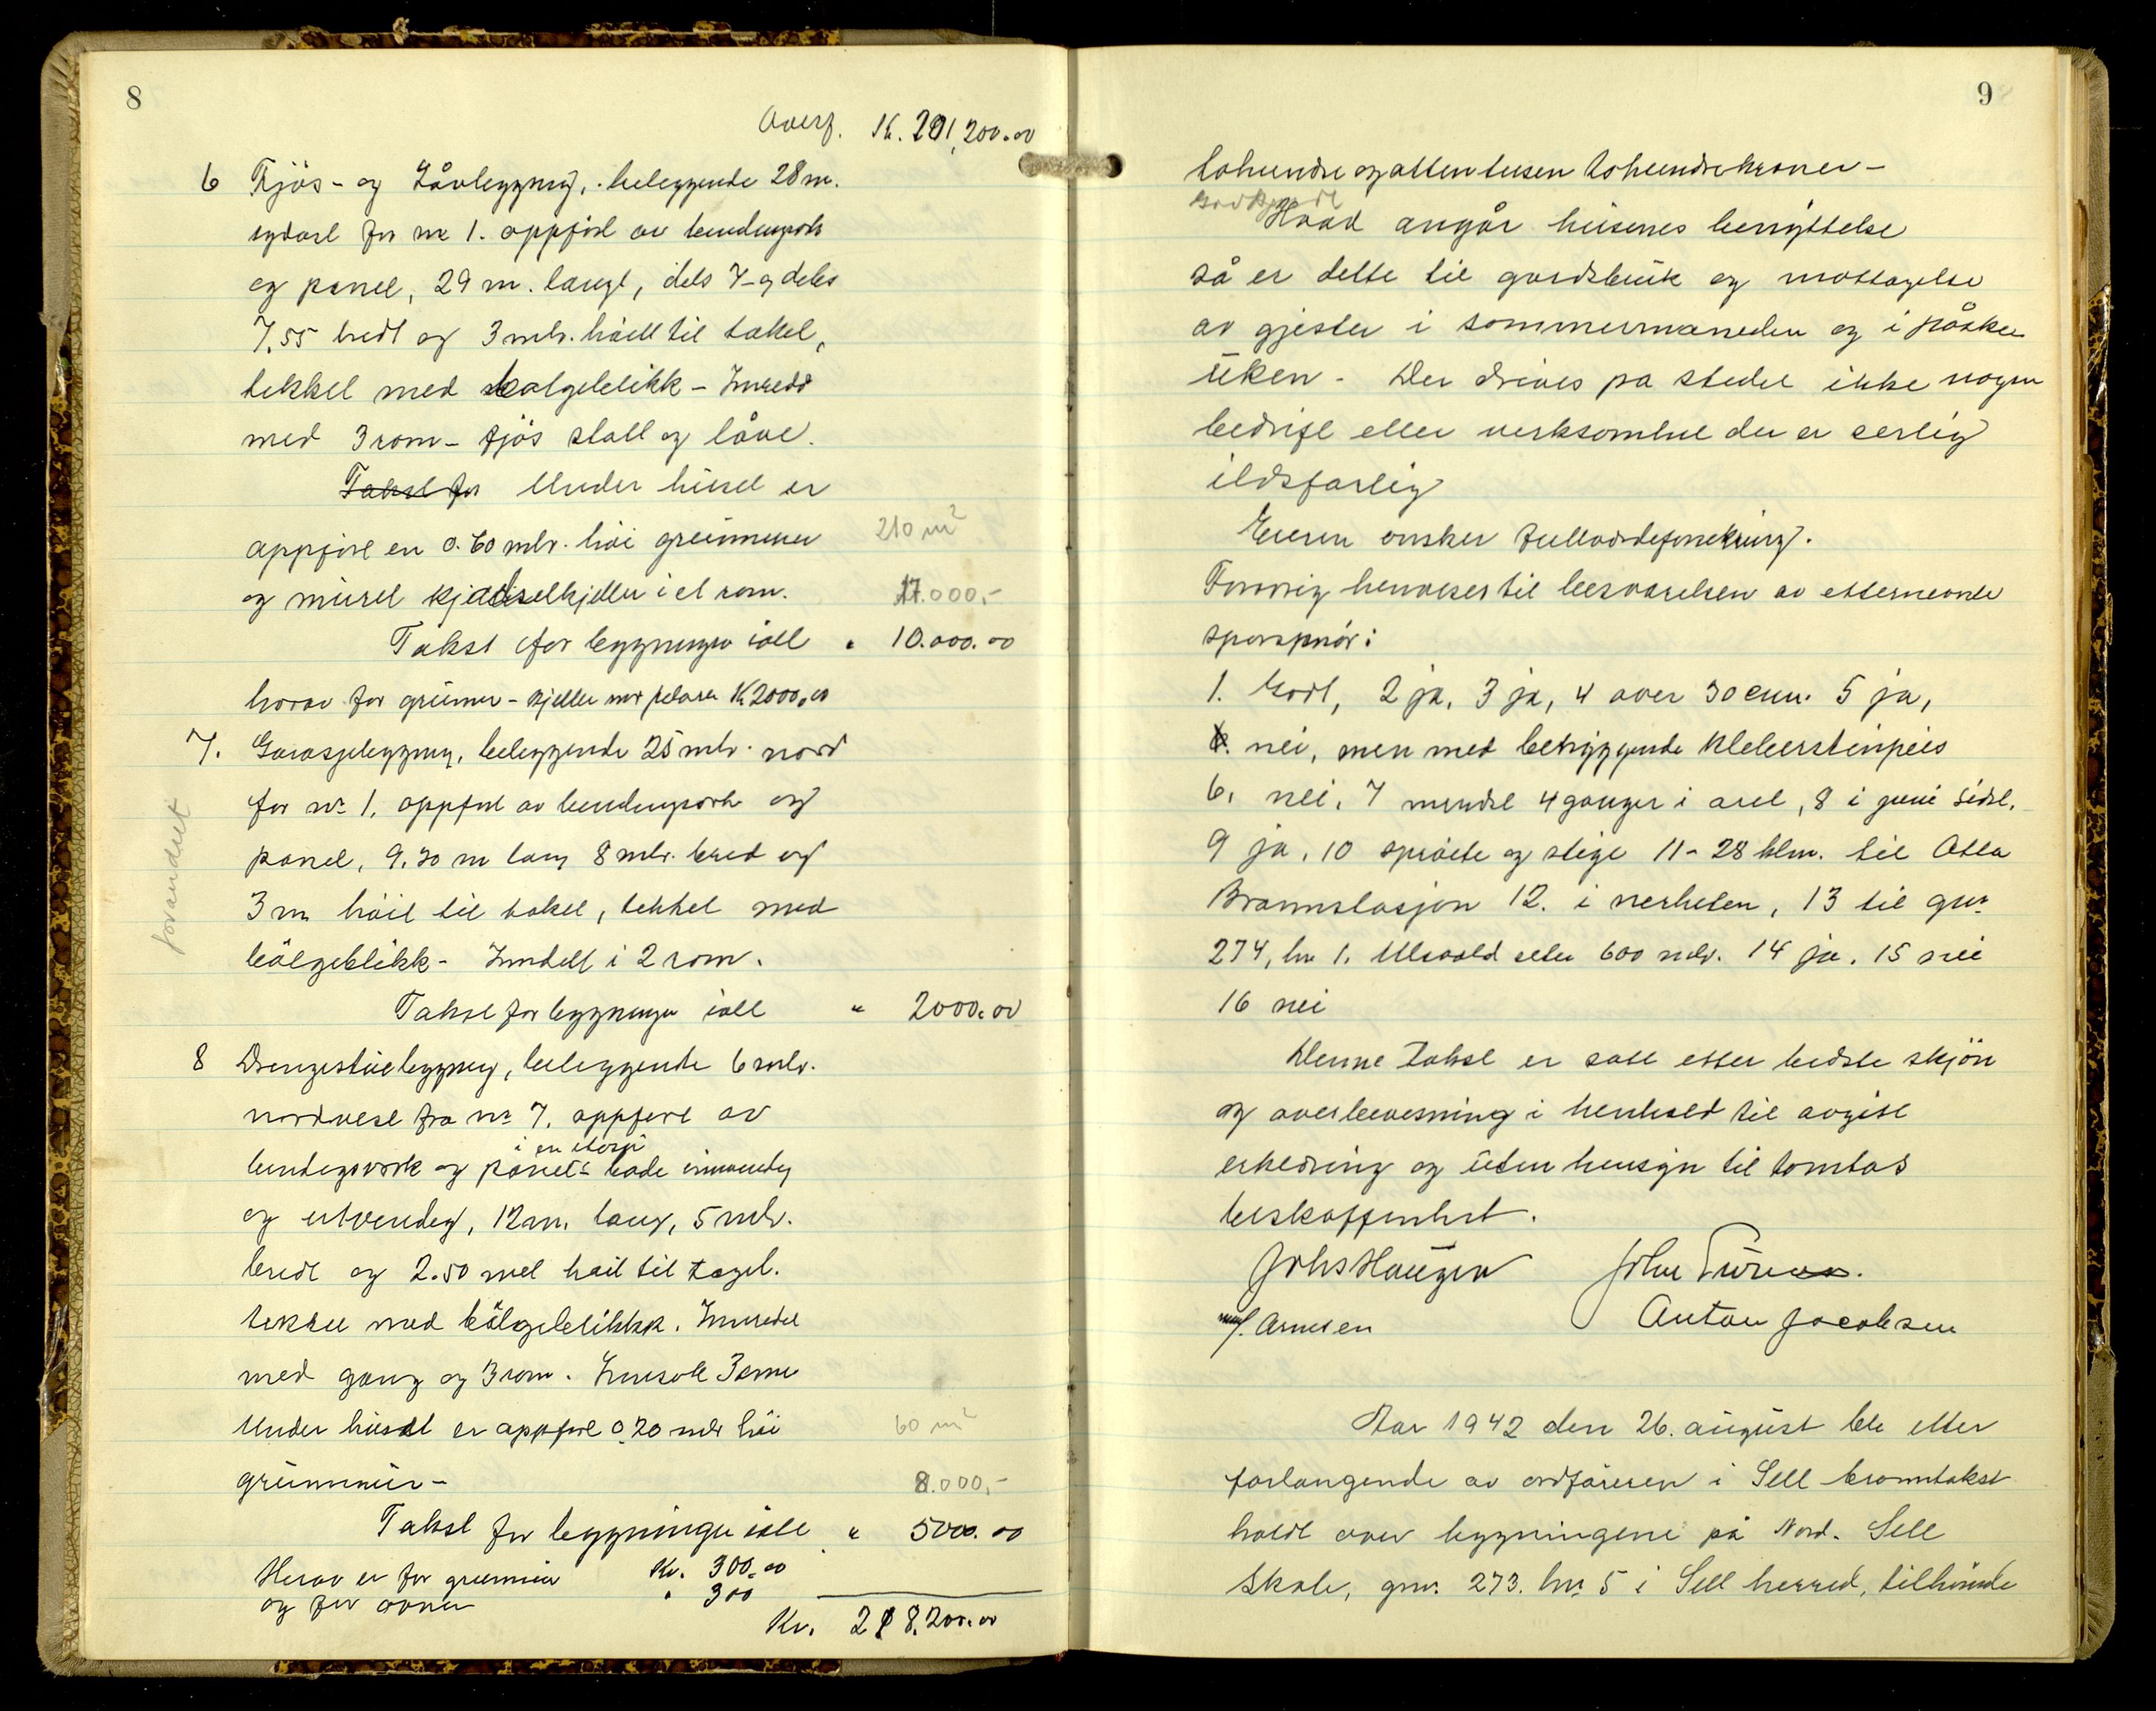 8
Overf. K. 201,200.00
6 Fjös- og Låvebygning, beliggende 28 m.
sydost for nr 1. oppfört av bindingsverk
og panel, 29 m. langt, dels 7- og dels
7,55 bredt og 3 mtr. höit til taket,
tekket med bølgeblikk - Innredd
med 3 rom - fjös stall og låve.
Takst for Under huset er
oppfört en 0.60 mtr. höi grunnmur
210 m²
og muret kjeller i et rom.
17.000,-
Takst for bygningen ialt " 10.000.00
herav for grunnm - kjeller K 2000,00
7. Garasjebygning, beliggende 25 mtr. nord
for nr 1. oppfört av bindingsverk og
panel, 9.30 m lang 8 mtr. bred og
3 m höit til taket, tekket med
bölgeblikk - Inndelt i 2 rom.
forandret
Takst for bygningen ialt " 2000.00
8 Drengestuebygning, beliggende 6 mtr.
nordvest fra nr 7. oppfört av
i en etasje
bindingsverk og panel - både innvendig
og utvendig, 12 m. lang, 5 mtr.
bredt og 2.50 met höit til taget.
tekket med bölgeblikkk. Innredet
med gang og 3 rom. Innsatt 3 ovne
Under huset er oppfört 0,20 mtr höi
60 m²
grunnmur -
8.000,-
Takst for bygningen ialt " 5000.00
Herav er for grunnmur Kr. 300.00
og for ovner " 300
Kr. 218.200.00
9
tohundre og atten tusen tohundre kroner -
Godkjendt
Hvad angår husenes benyttelse
så er dette til gardsbruk og mottagelse
av gjester i sommermaneden og i påske
uken - Der drives pa stedet ikke nogen
bedrift eller verksomhet der er serlig
ildsfarlig
Eieren önsker fullverdeforsikring.
Forövrig henvises til besvarelsen av etternevnte
spörsmör:
1. Godt, 2 ja, 3 ja, 4 over 30 cm. 5 ja,
6. nei, men med betryggende klebersteinpeis
6. nei, 7 mindst 4 ganger i aret, 8 i juni sidst.
9 ja, 10 spröite og stige 11 - 28 klm. til Otta
Brannstasjon 12. i nerheten, 13 til gnr.
274, bn 1. Ulvold seter 600 mtr. 14 ja. 15 nei
16 nei
Denne takst er satt etter bedste skjön
og overbevisning i henhold til avgitt
erkledring og uten hensyn til tomtas
beskaffenhet.
Johs Haugen
Arnesen Anton Jacobsen
Aar 1942 den 26. august ble etter
forlangende av ordföreren i Sell branntakst
holdt over bygningene på Nord - Sell
Skole, gnr. 273. bnr. 5 i Sell herred, tilhörende